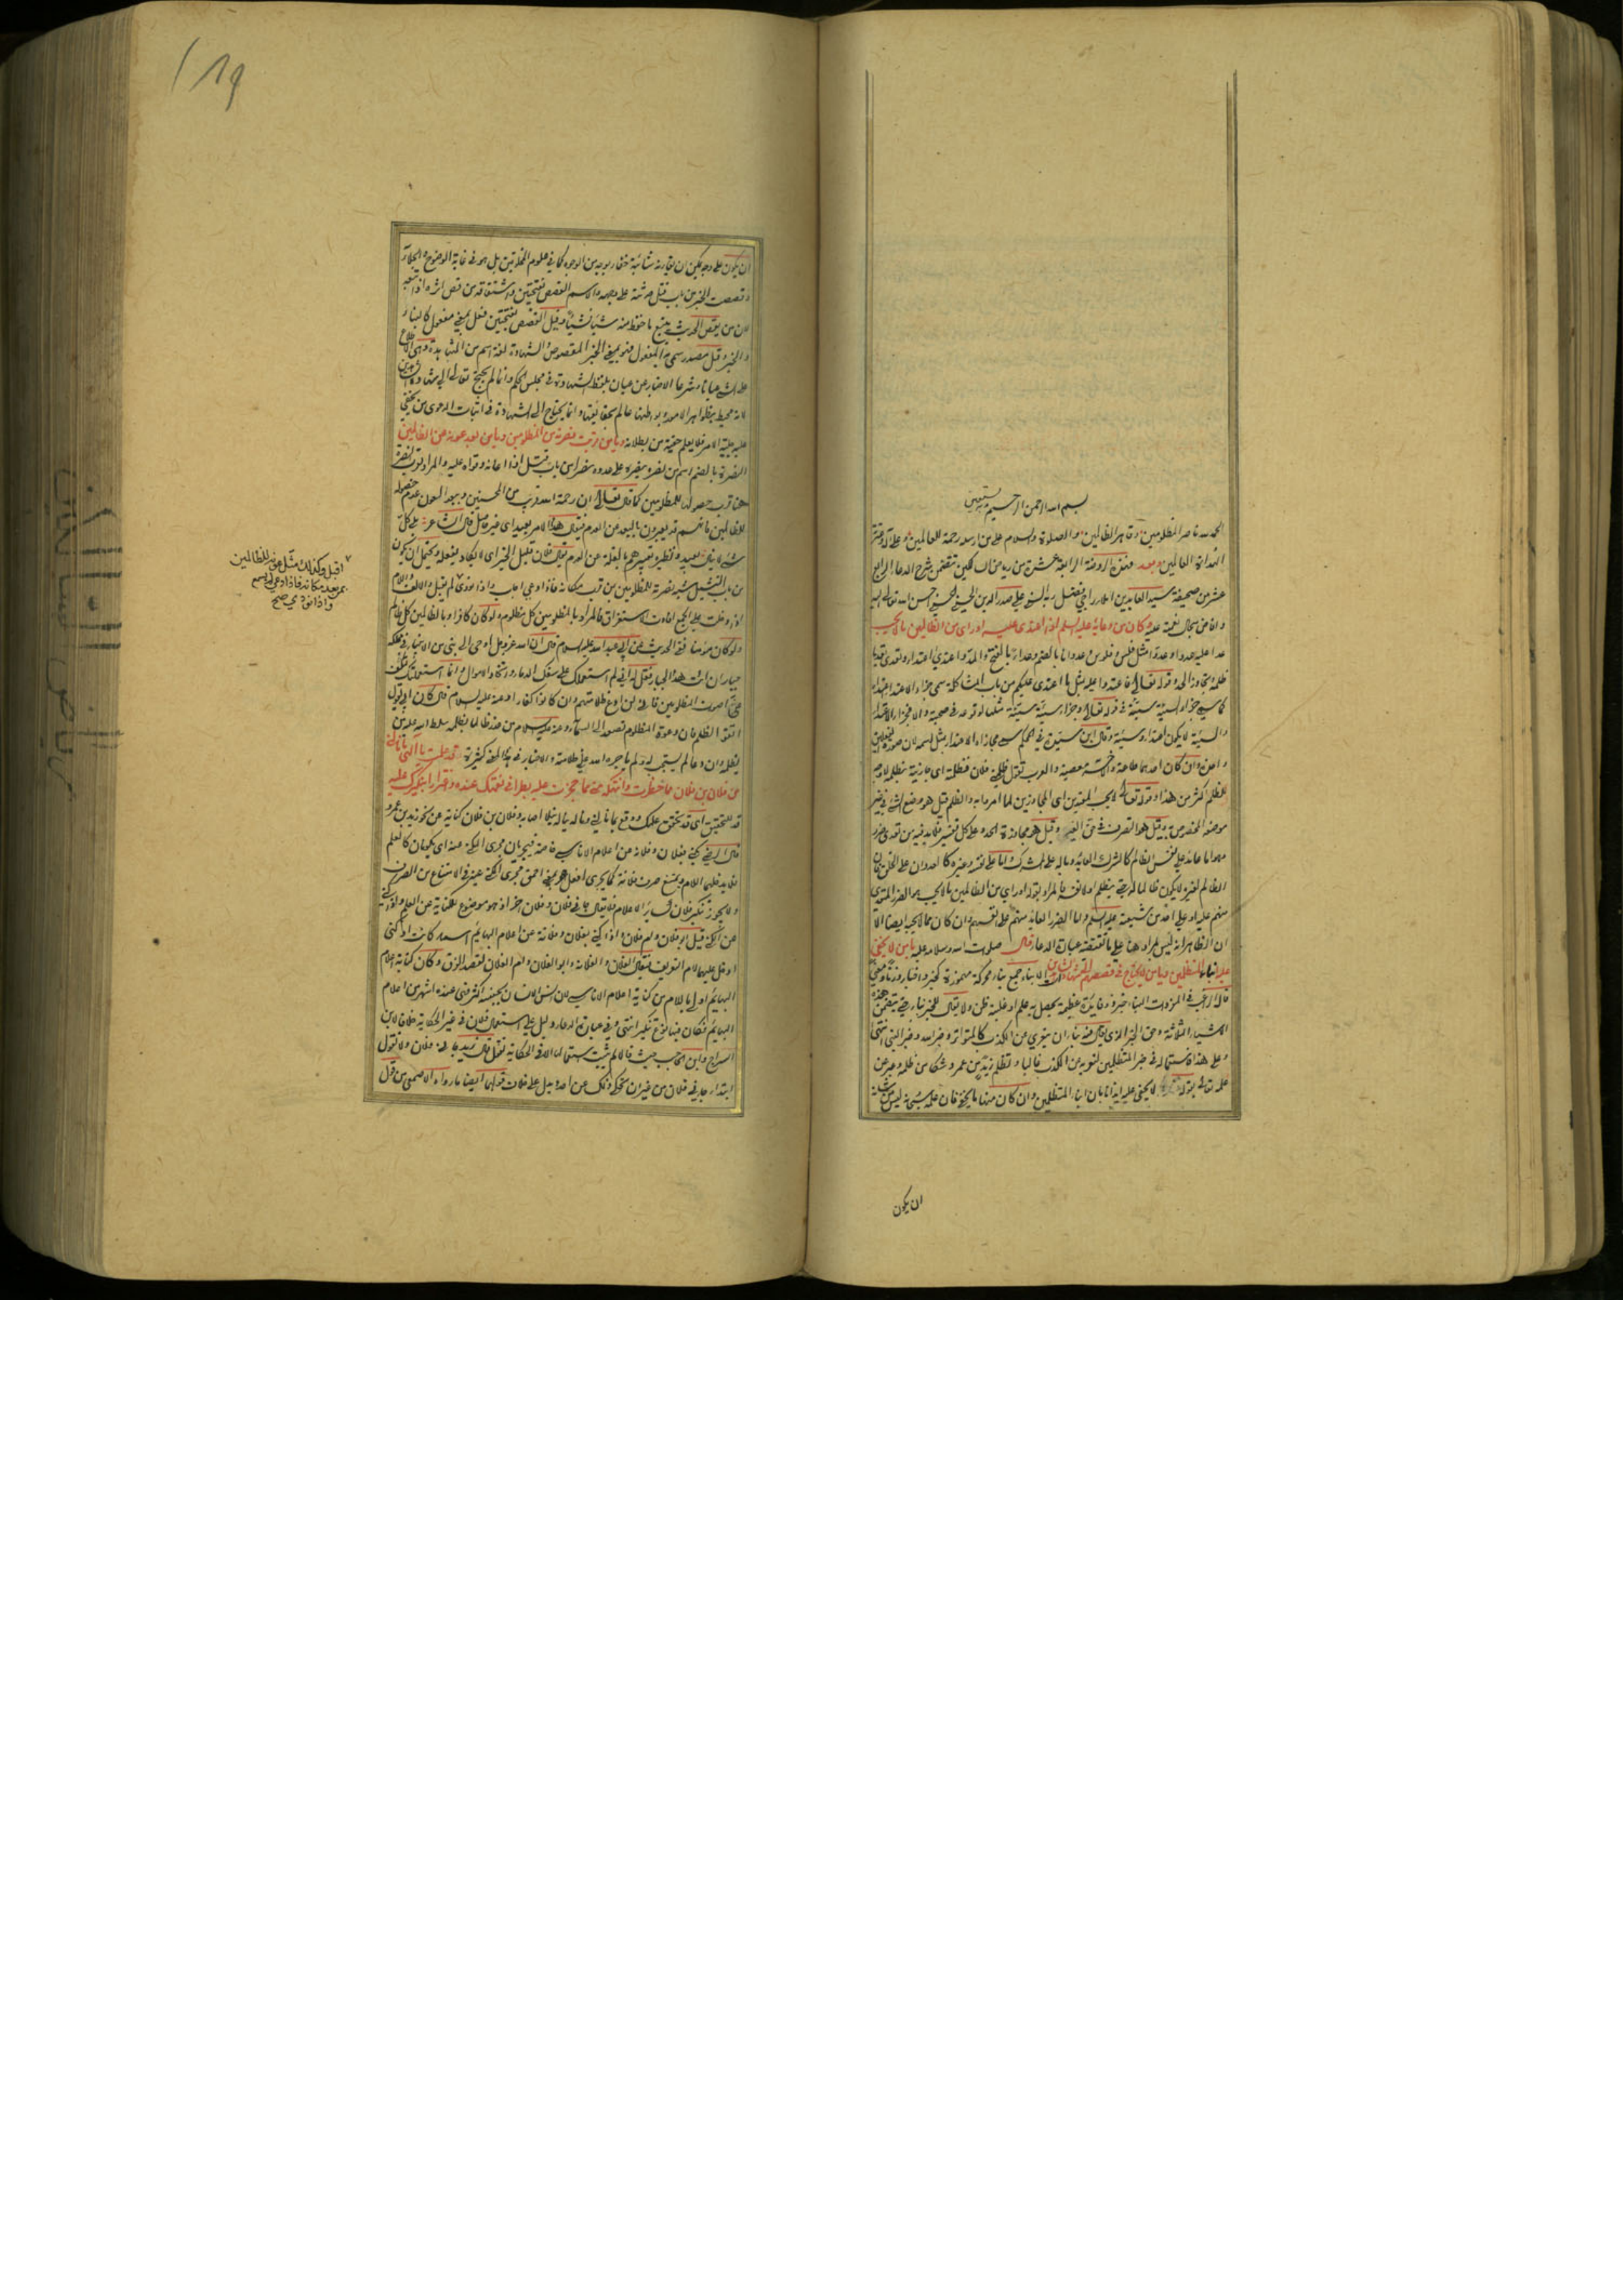 بسم الله الرحمن الرحيم وبه نستعين
الحمد لله ناصر المظلومين وقاهر الظالمين والصلوة والسلام على من ارسله رحمة للعالمين وعلى آله وعترته
الهداة العالمين وبعد فهذه الروضة الرابعة عشرة من رياض السالكين تتضمن شرح الدعاء الرابع
عشر من صحيفة سيد العابدين املاء راجي فضل ربه السني علي صدر الدين الحسيني الحسني احسن الله تعالى اليه
وافاض سجال نعمته عليه وكان من دعائه عليه السلم اذا اعتدى عليه او راى من الظالمين ما لا يحب
عدا عليه عدوا وعدوا مثل فلس وفلوس وعدوانا بالضم وعداء بالفتح والمد واعتدى اعتداء وتعدى تعديا
ظلمه وتجاوز الحد وقوله تعالى فاعتدوا عليه بمثل ما اعتدى عليكم من باب المشاكلة سمى جزاء الاعتداء اعتداء
كما سمى جزاء السيئة سيئة في قوله تعالى وجزاء سيئة سيئة مثلها لوقوعه في صحبته والا فجزاء الاعتداء
والسيئة لا يكون اعتداء وسيئة وقال ابن سيدة في المحكم سمى مجازاة الاعتداء بمثل اسمه لان صورة الفعلين
واحدة وان كان احدهما طاعة والاخر معصية والعرب تقول ظلمني فلان فظلمته اي جازيته بظلمه لا وجه
للظلم اكثر من هذا وقوله تعالى لا يحب المعتدين اي المجاوزين لما امروا به والظلم قيل هو وضع الشئ في غير
موضعه المختص به وقيل هو التصرف في حق الغير وقيل هو مجاوزة الحد وعلى كل تفسير فلا بد فيه من تعدي ضرر
وهو اما عائد على نفس الظالم كالشرك العائد وباله على المشرك واما على نفسه وغيره كالعدوان على الخلق فان
الظالم لغيره لا يكون ظالما له حتى يظلم اولا نفسه فالمراد بقوله او راى من الظالمين ما لا يحب هو الضرر المتعدي
منهم عليه او على احد من شيعته عليه السلم واما الضرر العائد منهم على انفسهم وان كان مما لا يحبه ايضا الا
ان الظاهر انه ليس مراد هنا على ما تقتضيه عبارة الدعاء قال صلوات الله وسلامه عليه يا من لا يخفى
عليه انباء المتظلمين ويا من لا يحتاج في قصصهم الى شهادات الشاهدين الانباء جمع نبأ محركة مهموزة كخبر واخبار وزنا ومعنى
قال الراغب في المفردات النبأ خبر ذو فائدة عظيمة يحصل به علم او غلبة ظن ولا يقال للخبر نبأ حتى يتضمن هذه
الاشياء الثلاثة وحق الخبر الذي يقال فيه نبأ ان يتعرى عن الكذب كالمتواتر وخبر الله وخبر النبي انتهى
وعلى هذا فاستعماله في خبر المتظلمين لتعريه عن الكذب غالبا وتظلم زيد من عمرو شكا من ظلمه وعبر عن
علمه تعالى بقوله لا يخفى عليه ايذانا بان انباء المتظلمين وان كان منها ما يخفى فان علمه بشئ منه ليس من شانه
ان يكون
۱۸۹
ان يكون على وجه يمكن ان يقارنه شائبة خفاء بوجه من الوجوه كما في علوم المخلوقين بل هو في غاية الوضوح والجلاء
وقصصت الخبر من باب قتل حدثته على وجهه والاسم القصص بفتحتين واشتقاقه من قص اثره اذا تتبعه
لان من يقص الحديث يتتبع ما حفظ منه شيئا فشيئا وقيل القصص بفتحتين فعل بمعنى مفعول كالنبأ
والخبر وقيل مصدر سمي به المفعول فهو بمعنى الخبر المقصوص والشهادة لغة اسم من المشاهدة وهي الاطلاع
على الشئ عيانا وشرعا الاخبار عن عيان بلفظ الشهادة في مجلس الحكم وانما لم يحتج تعالى الى شهادات الشاهدين
لانه محيط بظواهر الامور وبواطنها عالم بحقائقها وانما يحتاج الى الشهادة في اثبات الدعوى من يخفى
عليه جلية الامر فلا يعلم حقيته من بطلانه ويا من قربت نصرته من المظلومين ويا من بعد عونه عن الظالمين
النصرة بالضم اسم من نصره ينصره على عدوه نصرا من باب قتل اذا اعانه وقواه عليه والمراد بقرب نصرته
هنا قرب حصولها للمظلومين كما قال تعالى ان رحمة الله قريب من المحسنين وببعد العون عدم حصوله
للظالمين فانهم قد يعبرون بالبعد عن العدم فيقال هذا الامر بعيد اي غير حاصل قال الشاعر بلى كل
شئ لا ينال بعيد ونظيره تعبيرهم بالقلة عن العدم فيقال فلان قليل الخير اي لا يكاد يفعله ويحتمل ان يكون
من باب التمثيل شبه نصرته للمظلومين بمن قرب مكانه فاذا دعي اجاب واذا نودي اقبل والالف واللام
اذا دخلت على الجمع افادت الاستغراق فالمراد بالمظلومين كل مظلوم ولو كان كافرا وبالظالمين كل ظالم
ولو كان مؤمنا ففي الحديث عن ابي عبد الله عليه السلام قال ان الله عز وجل اوحى الى نبي من الانبياء في مملكة
جبار ان ائت هذا الجبار فقل له اني لم استعملك على سفك الدماء واتخاذ الاموال وانما استعملتك لتكف
عني اصوات المظلومين فاني لن ادع ظلامتهم وان كانوا كفارا وعنه عليه السلام قال كان ابي يقول
اتقوا الظلم فان دعوة المظلوم تصعد الى السماء وعنه عليه السلام من عذر ظالما بظلمه سلط الله عليه من
يظلمه وان دعا لم يستجب له ولم يأجره الله على ظلامته والاخبار في هذا المعنى كثيرة قد علمت يا الهي ما نالني
من فلان بن فلان مما حظرت وانتهكه مني مما حجزت عليه بطرا في نعمتك عنده واغترارا بنكيرك عليه
قد للتحقيق اي قد تحقق علمك ووقع بما نالني وناله يناله نيلا اصابه وفلان بن فلان كناية عن نحو زيد بن عمرو
قال الرضي يكنى بفلان وفلانة عن اعلام الاناسي خاصة فيجريان مجرى المكنى عنه اي يكونان كالعلم
فلا يدخلهما اللام ويمتنع صرف فلانة كما يجرى افعل هو بمعنى احمق مجرى المكنى عنه في الامتناع من الصرف
ولا يجوز تنكير فلان كسائر الاعلام فلا يقال جاءني فلان وفلان اخر اذ هو موضوع للكناية عن العلم واذا كني
عن الكنى قيل ابو فلان وام فلان واذا كني بفلان وفلانة عن اعلام البهائم اسماء كانت او كنى
ادخل عليهما لام التعريف فيقال الفلان والفلانة وابو الفلان وام الفلان لقصد الفرق وكان كناية اعلام
البهائم اولى باللام من كناية اعلام الاناسي لان انس الانسان بجنسه اكثر فهي عنده اشهر من اعلام
البهائم فكان فيها نوع تنكير انتهى وفي عبارة الدعاء دليل على استعمال فلان في غير الحكاية خلافا لابن
السراج وابن الحاجب حيث قالا لم يثبت استعماله الا في الحكاية تقول قال زيد جاءني فلان ولا تقول
ابتداء جاءني فلان من غير ان تحكي ذلك عن احد ويدل على خلاف قولهما ايضا ما رواه الاصمعي من قول
اقبل وكذلك مثل عونه للظالمين
بمن بعد مكانه فاذا دعي لم يسمع
واذا نودي صح